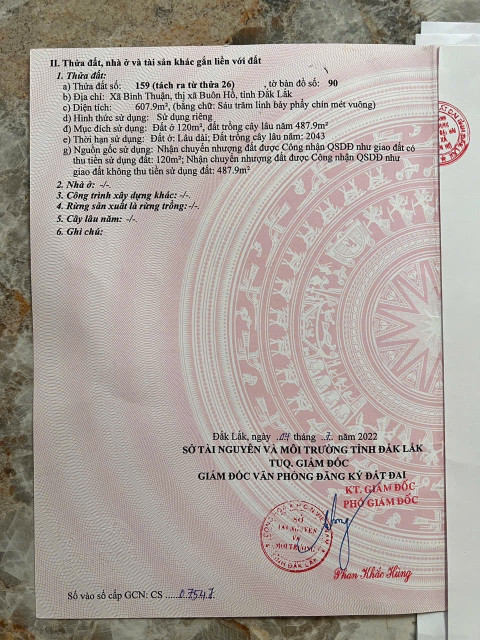 II. Thửa đất, nhà ở và tài sản khác gắn liền với đất
1. Thửa đất:
a) Thửa đất số: 159 (tách ra từ thửa 26) , tờ bản đồ số: 90
b) Địa chỉ: Xã Bình Thuận, thị xã Buôn Hồ, tỉnh Đắk Lắk
c) Diện tích: 607.9m², (bằng chữ: Sáu trăm linh bảy phẩy chín mét vuông)
d) Hình thức sử dụng: Sử dụng riêng
đ) Mục đích sử dụng: Đất ở 120m², đất trồng cây lâu năm 487.9m²
e) Thời hạn sử dụng: Đất ở: Lâu dài; Đất trồng cây lâu năm: 2043
g) Nguồn gốc sử dụng: Nhận chuyển nhượng đất được Công nhận QSDĐ như giao đất có
thu tiền sử dụng đất: 120m²; Nhận chuyển nhượng đất được Công nhận QSDĐ như
giao đất không thu tiền sử dụng đất: 487.9m²
2. Nhà ở: -/-.
3. Công trình xây dựng khác: -/-.
4. Rừng sản xuất là rừng trồng: -/-.
5. Cây lâu năm: -/-.
6. Ghi chú:
Đắk Lắk, ngày 04 tháng 7 năm 2022
SỞ TÀI NGUYÊN VÀ MÔI TRƯỜNG TỈNH ĐẮK LẮK
TUQ. GIÁM ĐỐC
GIÁM ĐỐC VĂN PHÒNG ĐĂNG KÝ ĐẤT ĐAI
KT. GIÁM ĐỐC
PHÓ GIÁM ĐỐC
SỞ
TÀI NGUYÊN
VÀ
MÔI TRƯỜNG
TỈNH ĐẮK LẮK
Phan Khắc Hùng
Số vào sổ cấp GCN: CS .....07547